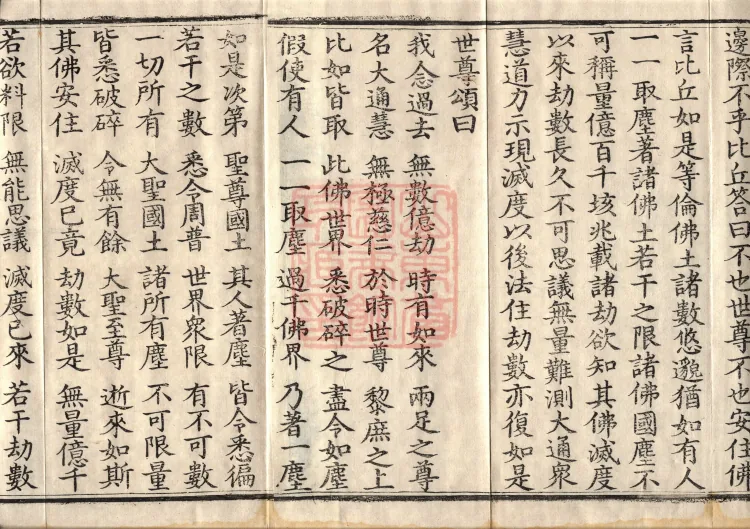 邊際不乎比丘答曰不也世尊不也安住佛
言比丘如是等倫佛土諸數悠邈猶如有人
一一取塵著諸佛土若干之限諸佛國塵不
可稱量億百千垓兆載諸劫欲知其佛滅度
以來劫數長久不可思議無量難測大通眾
慧道方示現滅度以後法住劫數亦復如是
世尊頌曰
我念過去 無數億劫 時有如來 兩足之尊
名大通慧 無極慈仁 於時世尊 黎庶之上
比如皆取 此佛世界 悉破碎之 盡令如塵
假使有人 一一取塵 過千佛界 乃著一塵
如是次第 聖尊國土 其人著塵 皆令悉徧
若干之數 悉令周普 世界眾限 有不可數
一切所有 大聖國土 諸所有塵 不可限量
皆悉破碎 令無有餘 大聖至尊 逝來如斯
其佛安住 滅度已竟 劫數如是 無量億千
若欲料限 無能思議 滅度已來 若干劫數